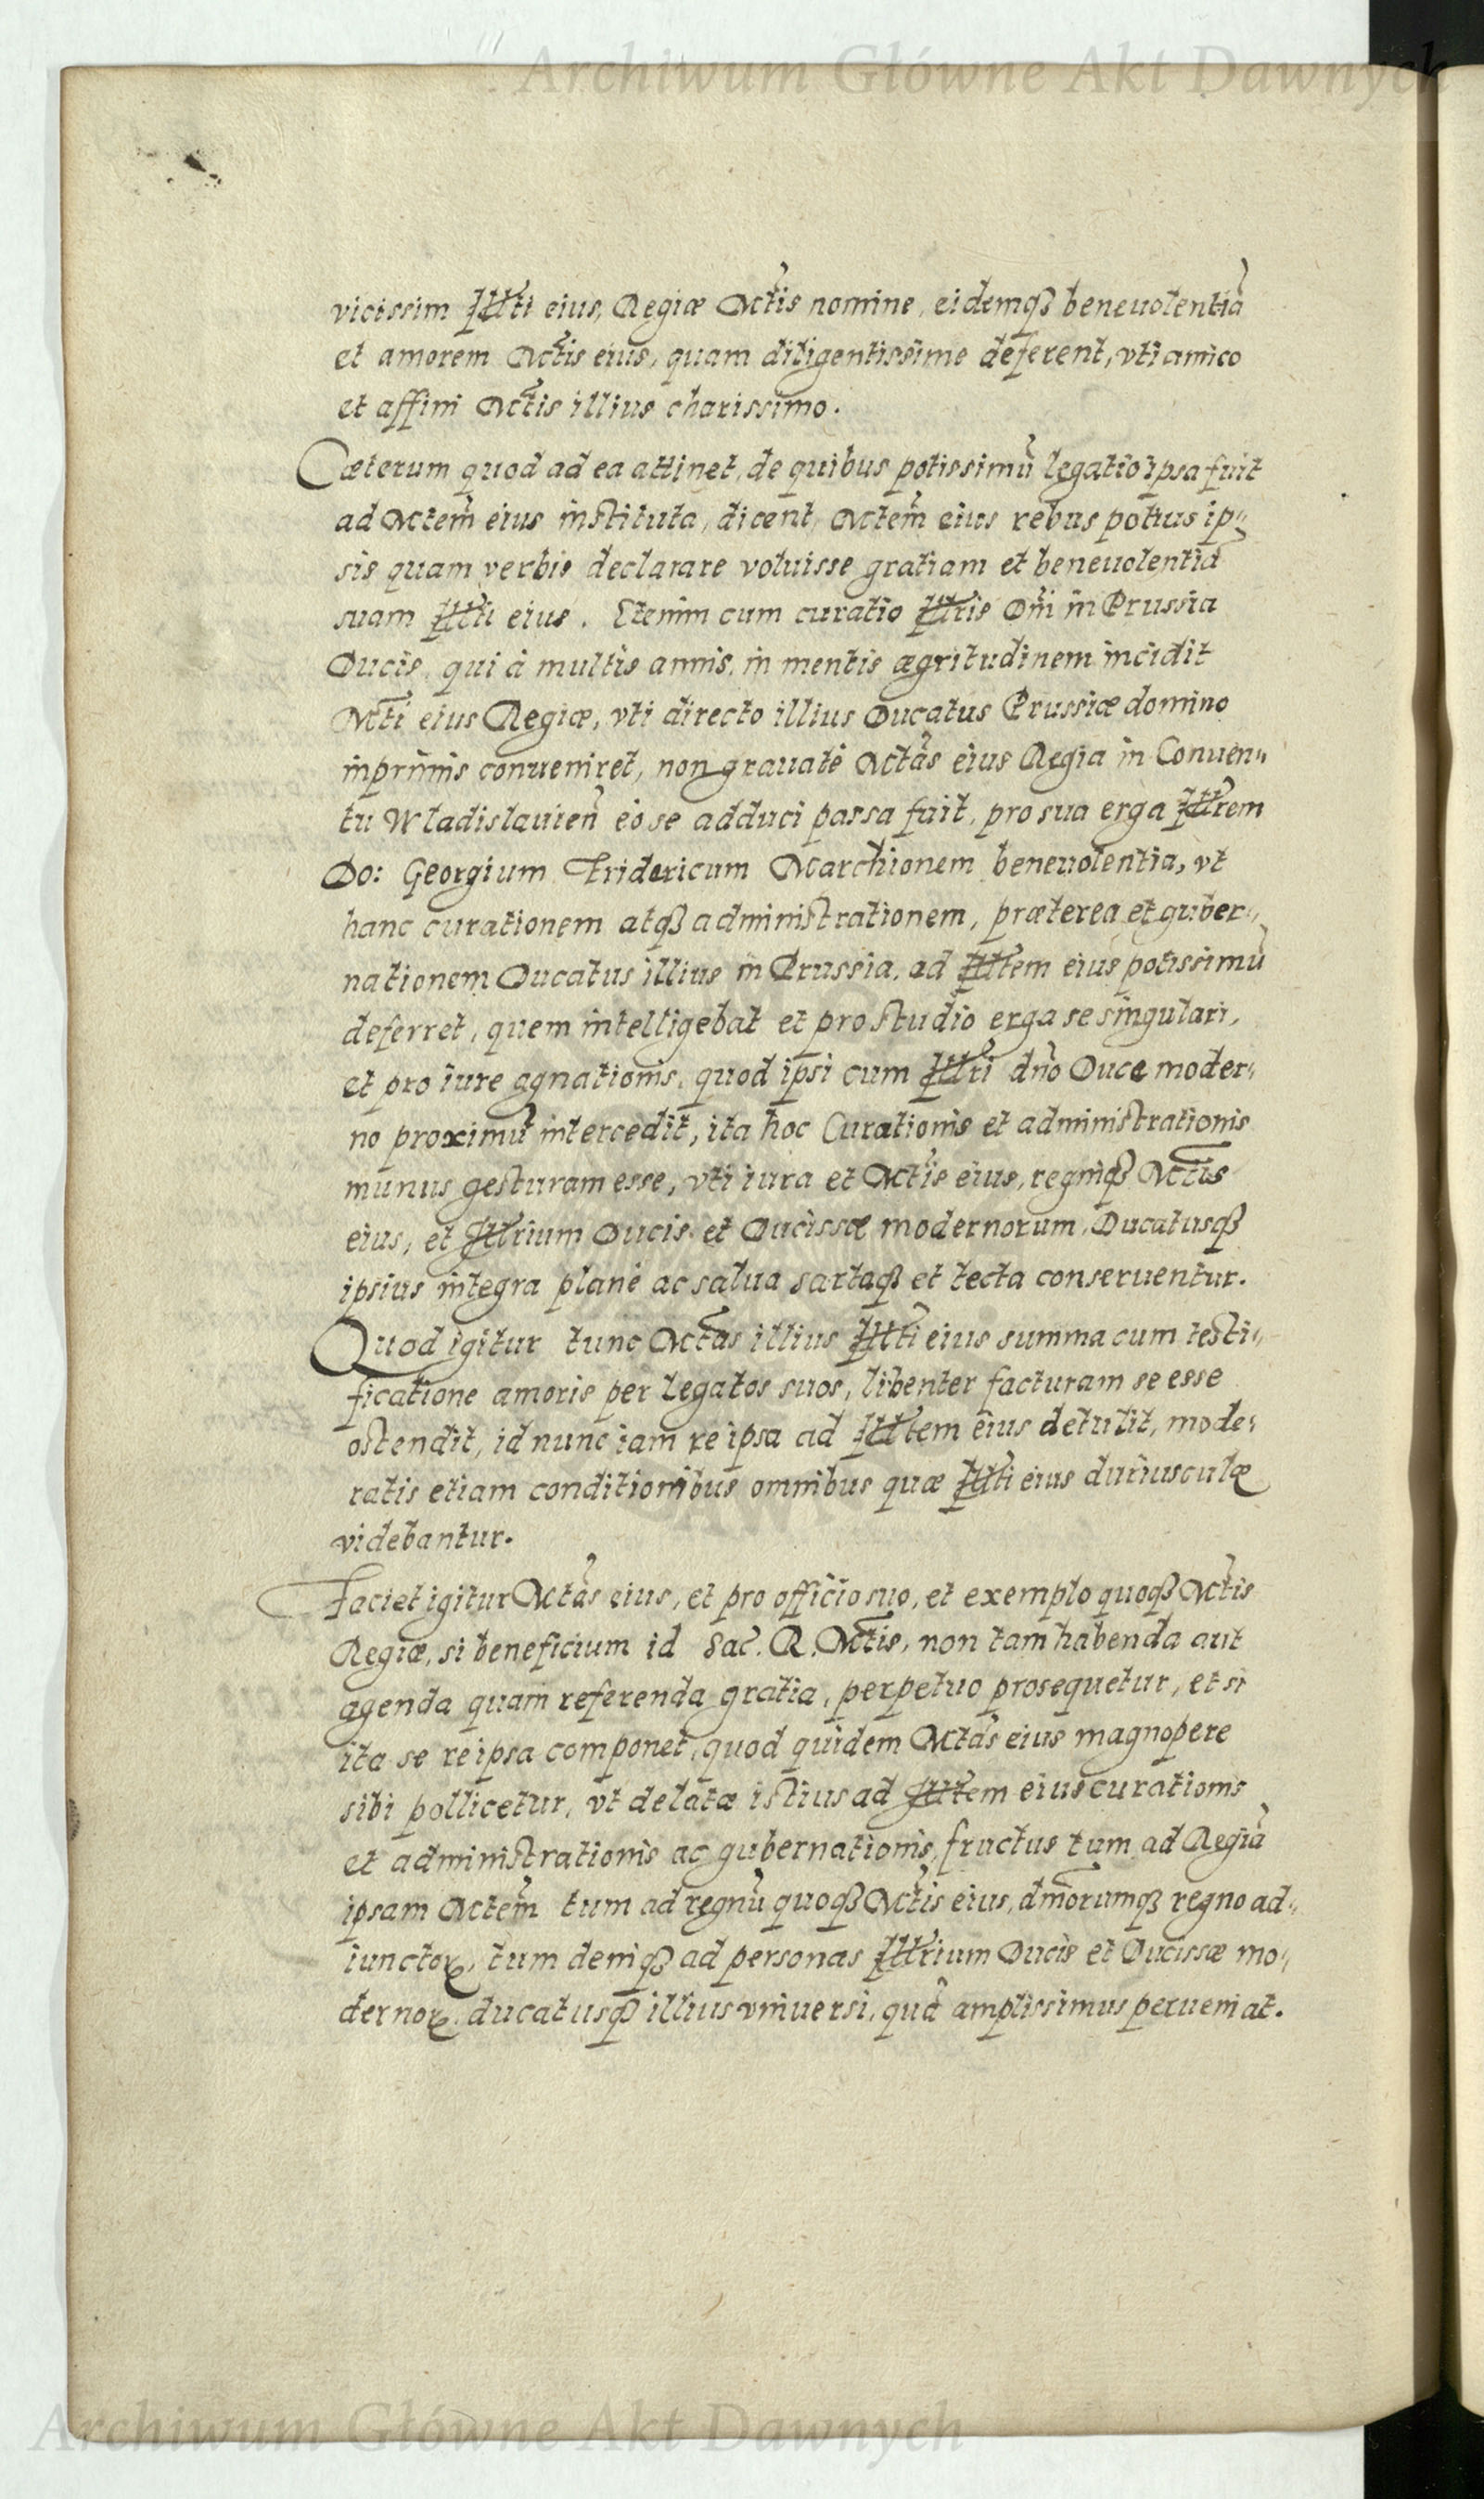 Archiwum Główne Akt Dawnych
vicissim Illti eius, Regiæ Mttis nomine, eidemqȝ beneuolentiā
et amorem Mttis eius, quam diligentissime deferent, vti amico
et affini Mttis illius charissimo.
Cæterum quod ad ea attinet, de quibus potissimū legatio ipsa fuit
ad Mttem eius instituta, dicent, Mttem eius rebus potius ip„
sis quam verbis declarare voluisse gratiam et beneuolentiā
suam Illti eius. Etenim cum curatio Illris Dni in Prussia
Ducis, qui à multis annis, in mentis ægritudinem incidit
Mtti eius Regiæ, vti directo illius Ducatus Prussiæ domino
inprimis conueniret, non grauatè Mttas eius Regia in Conuen„
tu Wladislauien̄ eò se adduci passa fuit, pro sua erga Illrem
Do: Georgium Fridericum Marchionem beneuolentia, vt
hanc curationem atqȝ administrationem, præterea et guber„
nationem Ducatus illius in Prussia, ad Illtem eius potissimū
deferret, quem intelligebat et pro studio erga se singulari,
et pro iure agnationis, quod ipsi cum Illri dn̄o Duce moder„
no proximū intercedit, ita hoc Curationis et administrationis
munus gesturam esse, vti iura et Mttis eius, regniqȝ Mttis
eius, et Illrium Ducis et Ducissæ modernorum, Ducatusqȝ
ipsius integra planè ac salua sartaqȝ et tecta conseruentur.
Quod igitur tunc Mttas illius Illti eius summa cum testi„
ficatione amoris per legatos suos, libenter facturam se esse
ostendit, id nunc iam re ipsa ad Illtem eius detulit, mode„
ratis etiam conditionibus omnibus quæ Illti eius duriusculæ
videbantur.
Faciet igitur Mttas eius, et pro officio suo, et exemplo quoqȝ Mttis
Regiæ, si beneficium id Sac. R. Mttis, non tam habenda aut
agenda quam referenda gratia, perpetuo prosequetur, et si
ita se re ipsa componet, quod quidem Mttas eius magnopere
sibi pollicetur, vt delatæ istius ad Illtem eius curationis
et administrationis ac gubernationis, fructus tum ad Regiā
ipsam Mttem tum ad regnū quoqȝ Mttis eius, dn̄iorumqȝ regno ad„
iunctoꝝ, tum deniqȝ ad personas Illrium Ducis et Ducissæ mo„
dernoꝝ, ducatusqȝ illius vniuersi, quā amplissimus perueniat.
Archiwum Główne Akt Dawnych